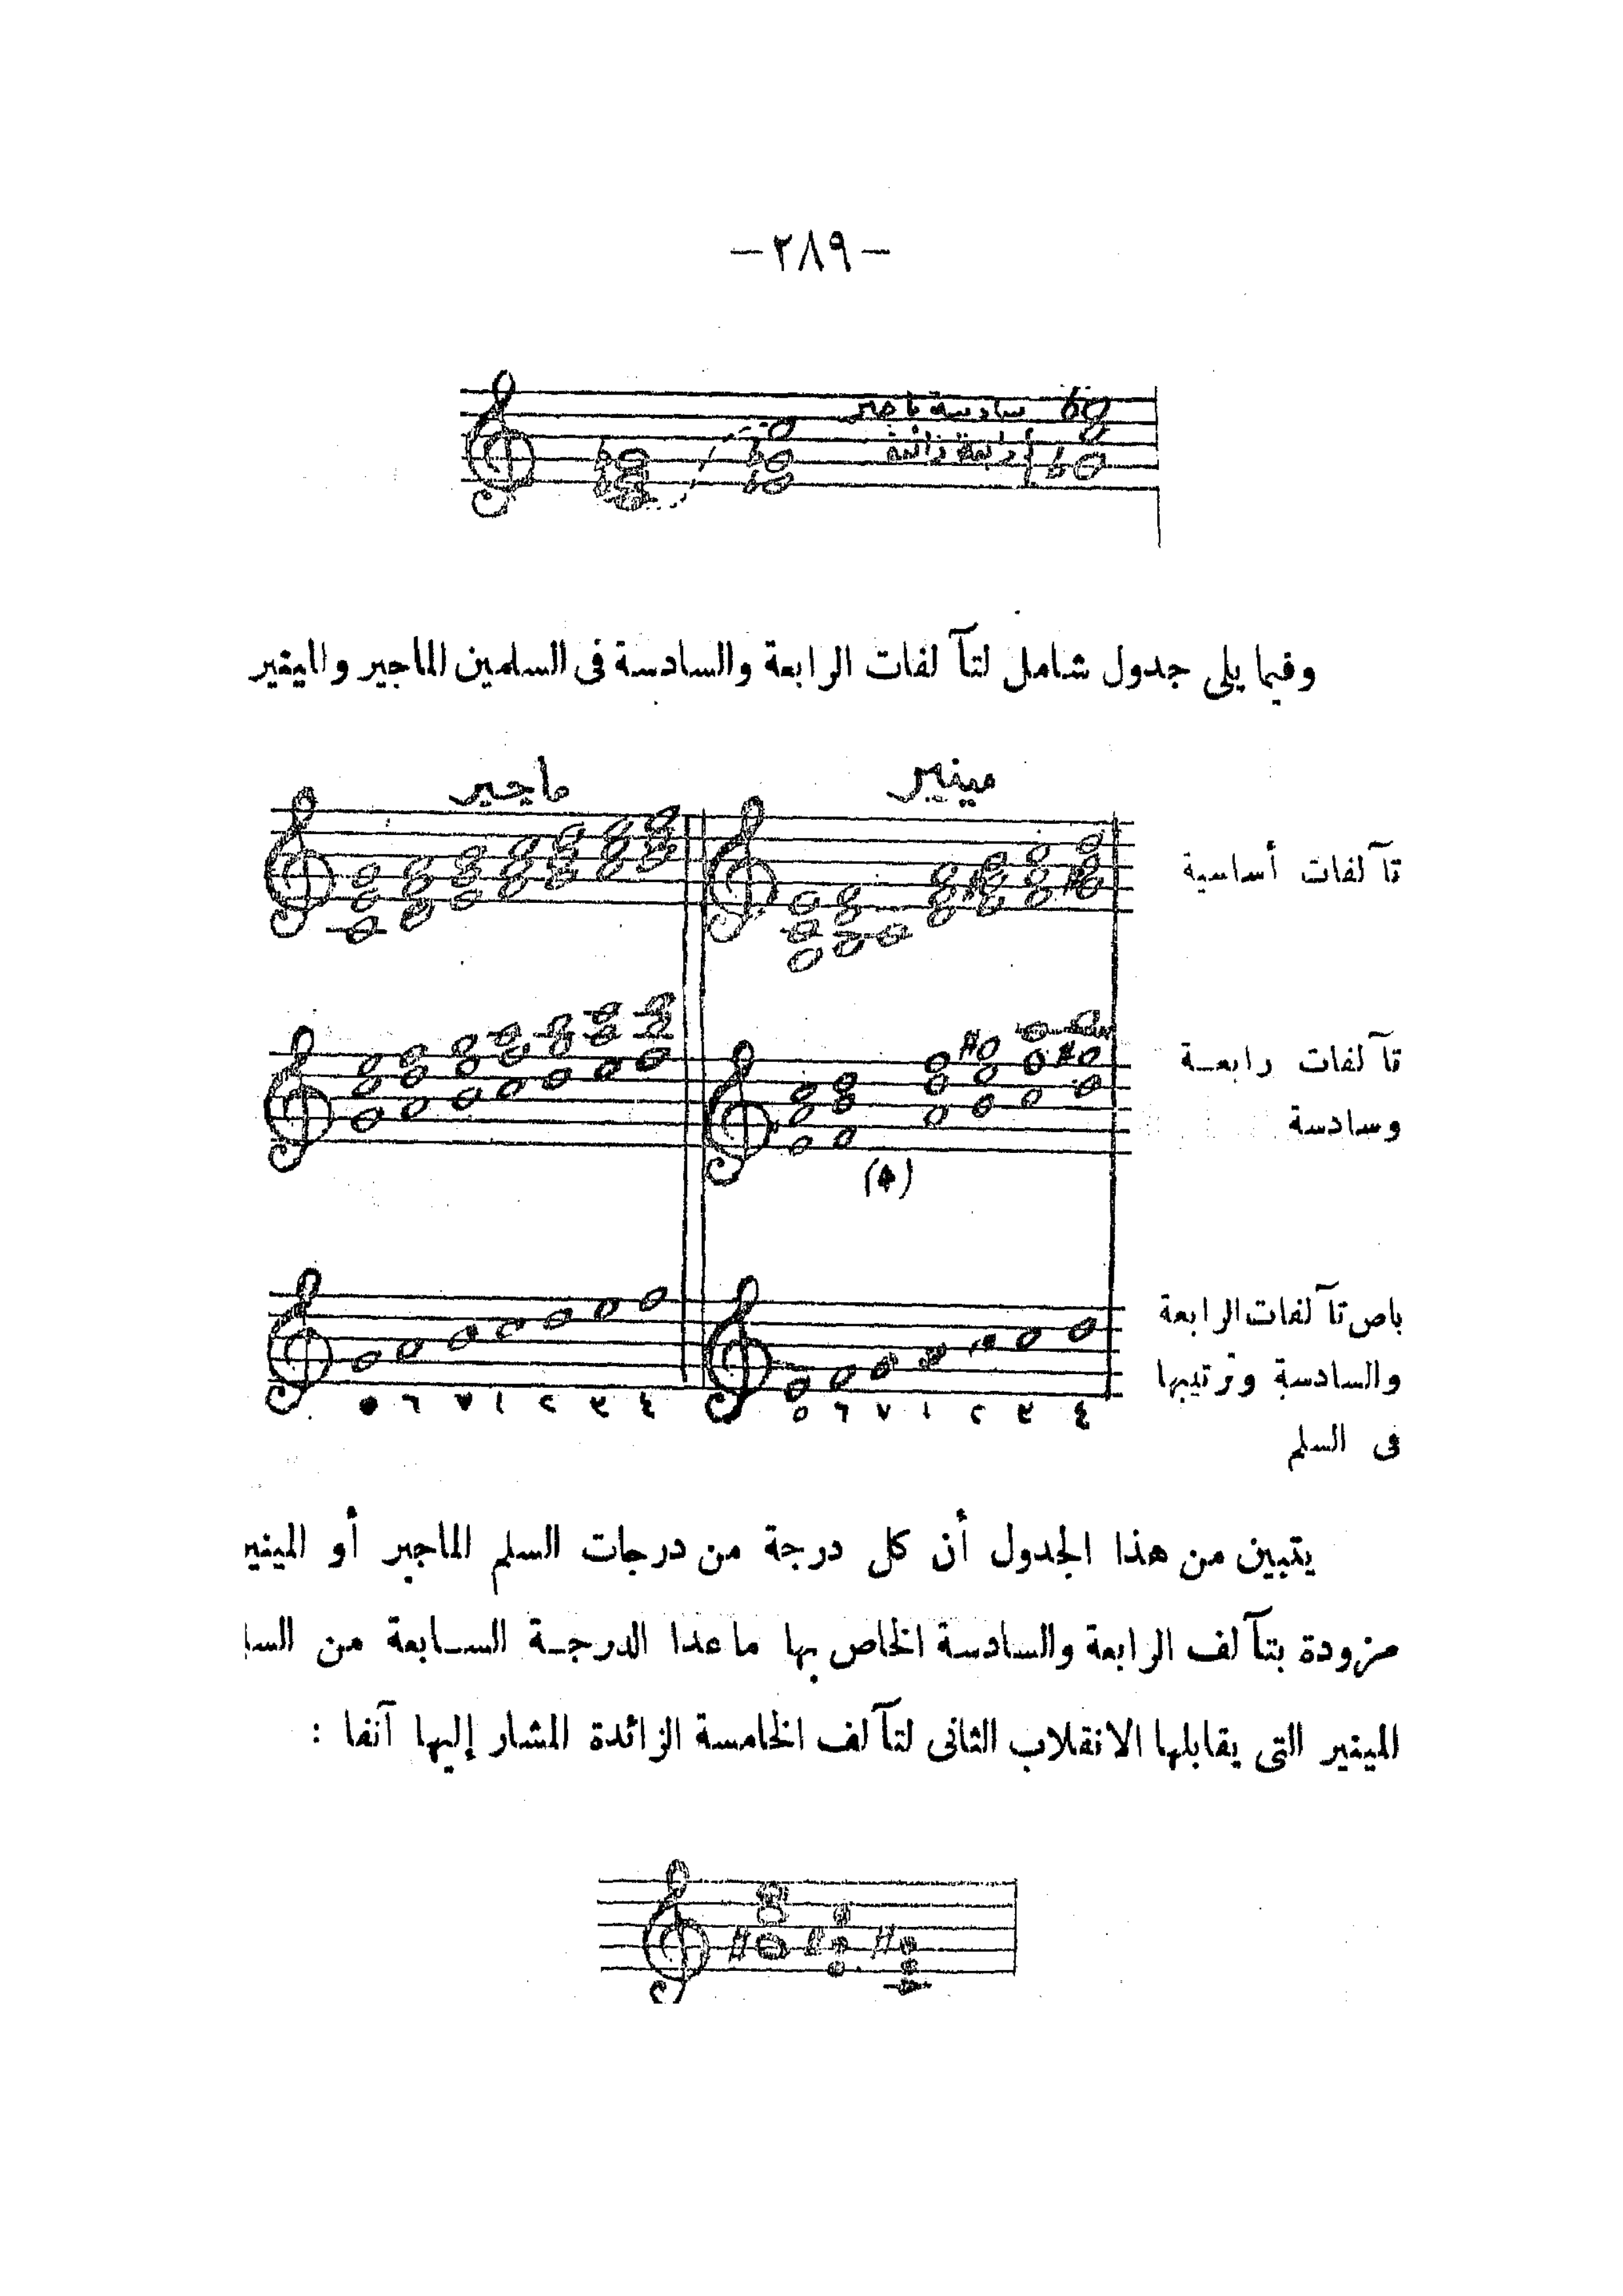 — ٢٨٩ —
سادسة ماجير
رابعة زائدة
وفيما يلى جدول شامل لتآلفات الرابعة والسادسة فى السلمين الماجير والمينير
ماجير مينير
تآلفات أساسية
تآلفات رابعة
وسادسة
(٠)
باص تآلفات الرابعة
والسادسة وترتيبها
فى السلم
٥ ٦ ٧ ١ ٢ ٣ ٤ ٥ ٦ ٧ ١ ٢ ٣ ٤
يتبين من هذا الجدول أن كل درجة من درجات السلم الماجير أو المينير
مزودة بتآلف الرابعة والسادسة الخاص بها ماعدا الدرجة السابعة من السا
المينير التى يقابلها الانقلاب الثانى لتآلف الخامسة الزائدة المشار إليها آنفا :